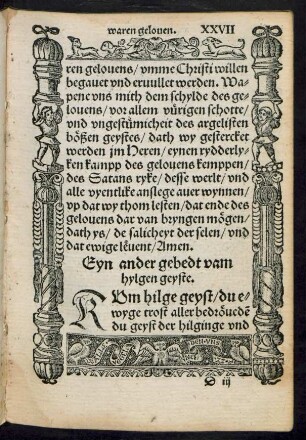 waren gelouen. XXVII
ren gelouens/ vmme Christi willen
begauet vnd eruullet werden. Wa-
pene vns mith dem schylde des ge-
louens/ vor allem vürigen schotte/
vnd vngestümicheit des argelisten
bößen geystes/ dath wy gestercket
werden im Heren/ eynen rydderly-
ken kampp des gelouens kemppen/
des Satans ryke/ desse werlt/ vnd
alle vyentlike anslege auer wynnen/
vp dat wy thom lesten/ dat ende des
gelouens dar van bryngen mögen/
dath ys/ de salicheyt der selen/ vnd
dat ewige leuent/ Amen.
Eyn ander gebedt vam
hylgen geyste.
KOm hilge geyst/ du e-
wyge trost aller bedröueden
du geyst der hilginge vnd
D iij